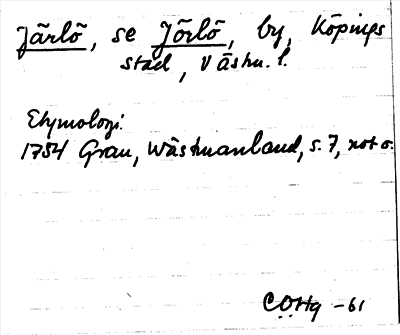 Järlö, se Jörlö, by, Köpings
stad, Västm. l.
Etymologi.
1754 Grau, Wästmanland, s. 7, not o.
C.O.Hg -61